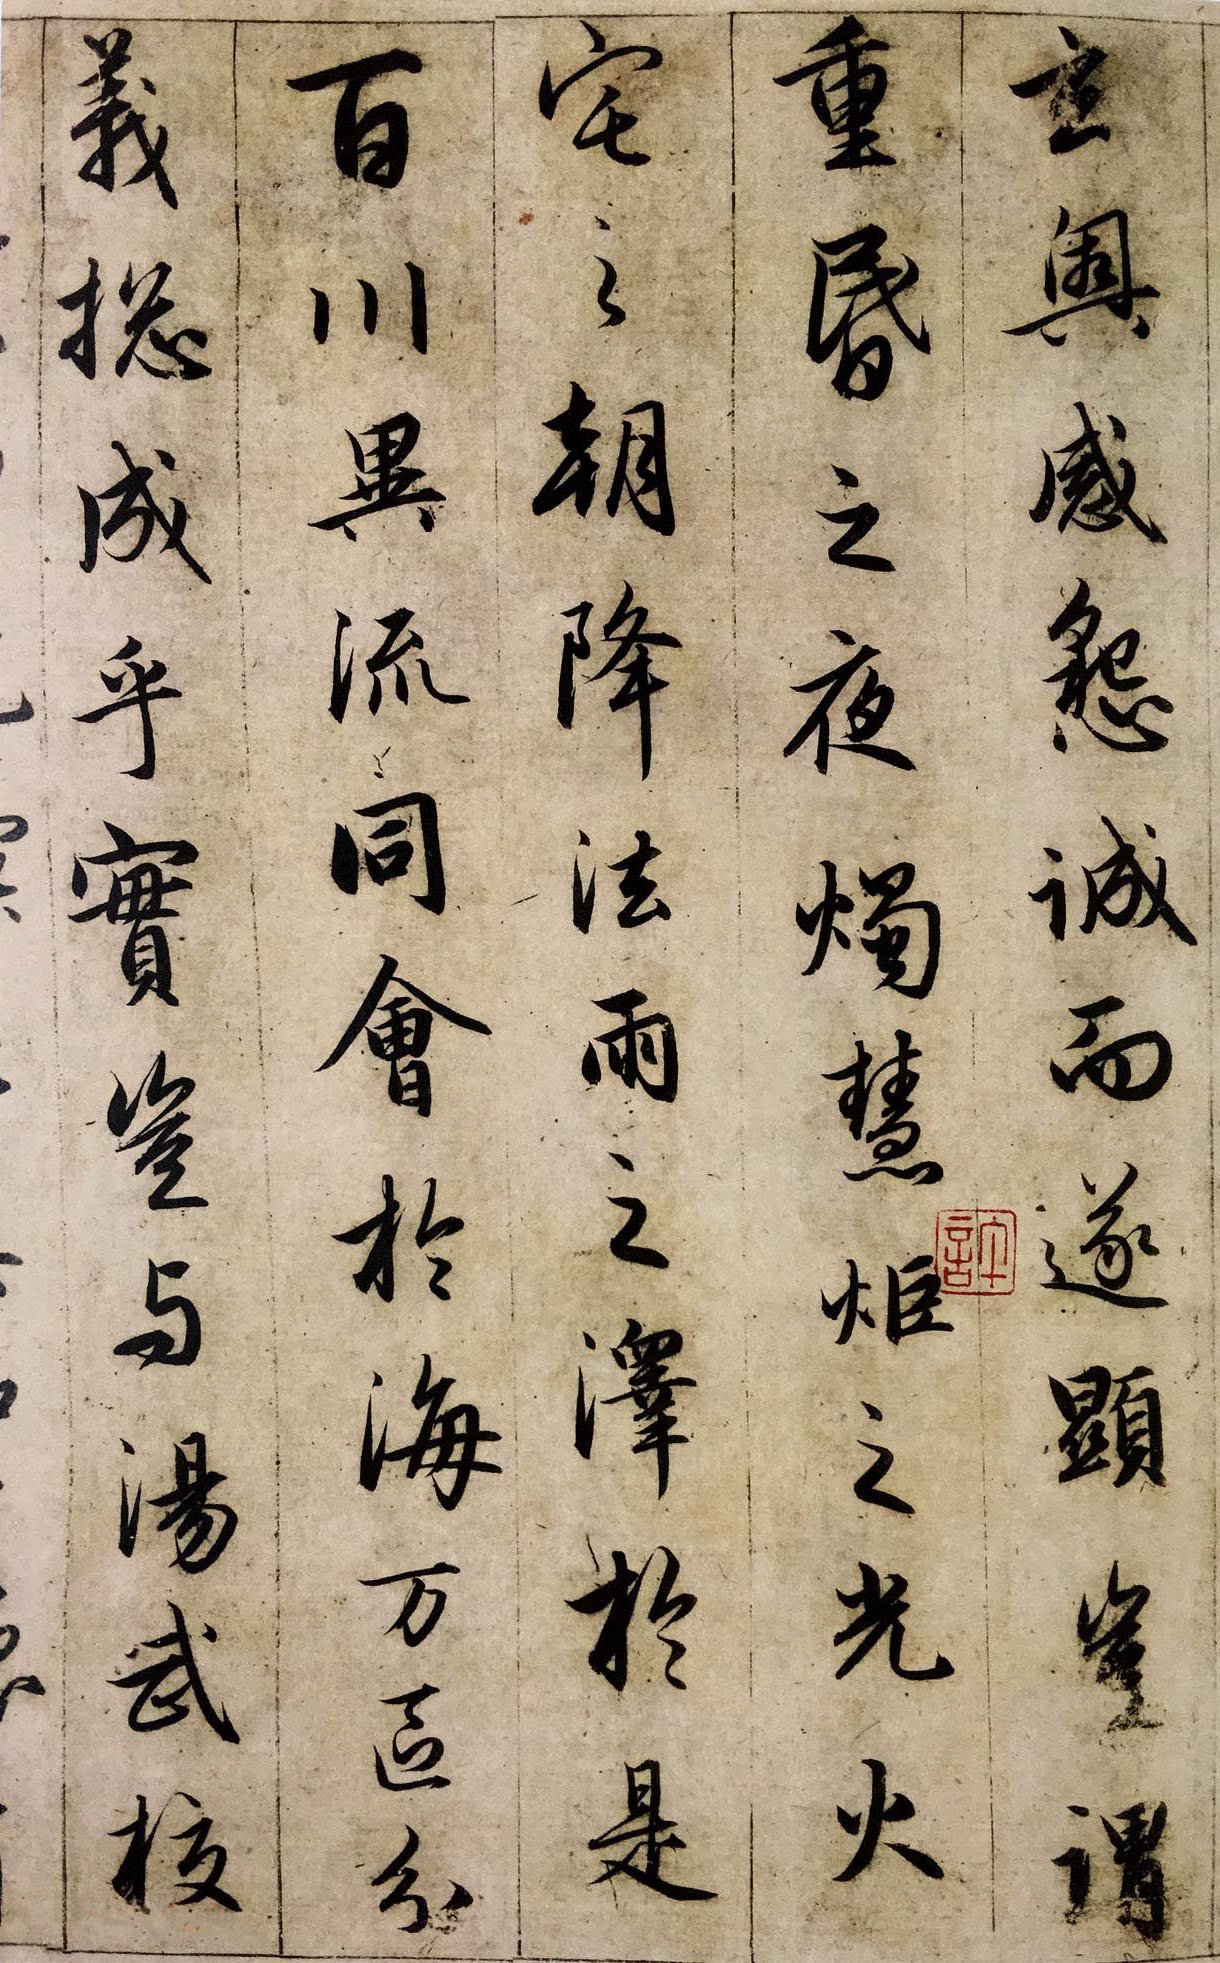 玄奥感懇誠而遂顯豈謂
重昏之夜燭慧炬之光火
宅之朝降法雨之澤於是
百川異流同會於海万區分
義揔成乎實豈与湯武校